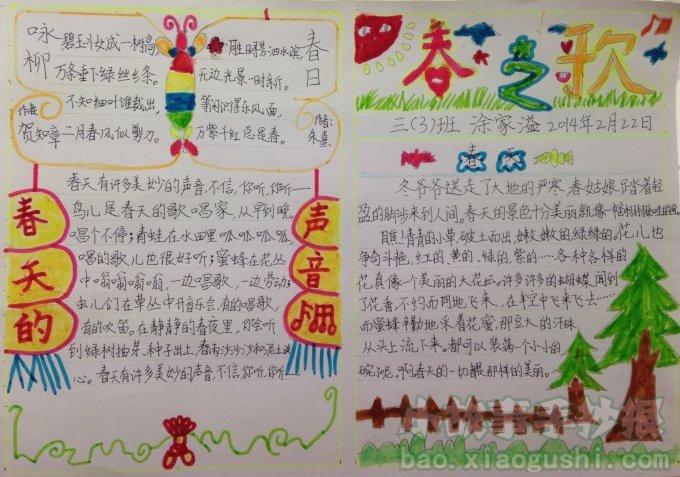 咏柳
碧玉妆成一树高,
万条垂下绿丝绦。
不知细叶谁裁出,
二月春风似剪刀。
作者:
贺知章
春日
胜日寻芳泗水滨,
无边光景一时新。
等闲识得东风面,
万紫千红总是春。
作者:
朱熹
春天的
声音
春天有许多美妙的声音,不信,你听,你听——
鸟儿是春天的歌唱家,从早到晚,
唱个不停;青蛙在水田里呱呱呱呱,
唱的歌儿也很好听;蜜蜂在花丛
中嗡嗡嗡嗡,一边唱歌,一边劳动;
虫儿们在草丛中开音乐会,有的唱歌,
有的吹笛。在静静的春夜里,你会听
到绿树抽芽,种子出土,春雨沙沙沙和泥土谈
心。春天有许多美妙的声音,不信,你听,你听——
春之歌
三(3)班 涂家溢 2014年2月22日
春天
冬爷爷送走了大地的严寒,春姑娘踏着轻
盈的脚步来到人间,春天的景色十分美丽,就像一幅
瞧!青青的小草,破土而出,嫩嫩的,绿绿的。花儿也
争奇斗艳,红的、黄的、绿的、紫的……各种各样的
花真像一个美丽的大花坛。许多许多的蝴蝶闻到
了花香,不约而同地飞来,在半空中飞来飞去……
而蜜蜂辛勤地采着花蜜,那豆大的汗珠
从头上流下来。都可以装满一个小小的
碗了呢。啊!春天的一切都是那样的美丽。
小故事手抄报
bao.xiaogushi.com